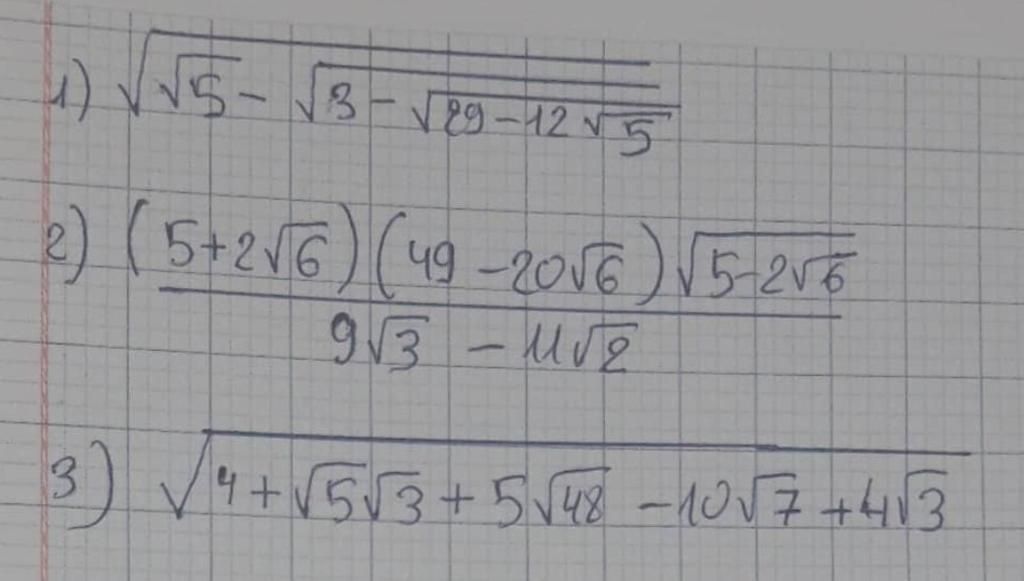 1) √(√5 - √(3 - √(29 - 12√5)))
2) (5+2√6)(49-20√6)√(5-2√6)
9√3 - 11√2
3) √(4+√5√3+5√48-10√7+4√3)